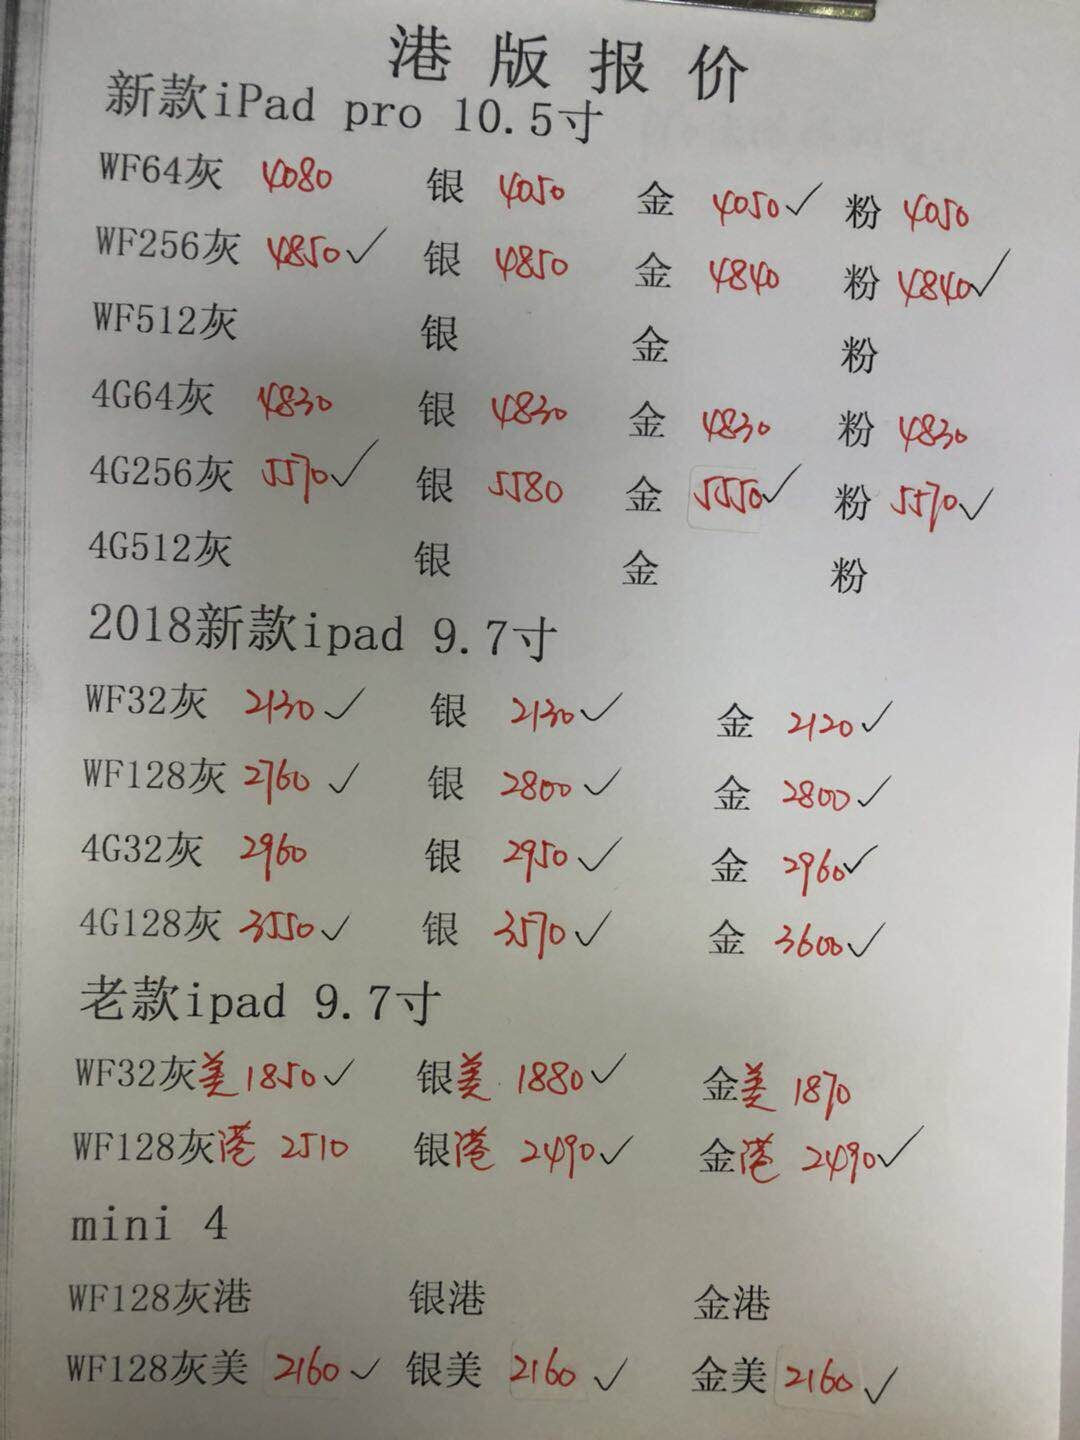 港版报价
新款iPad pro 10.5寸
WF64灰 4080 银 4050 金 4050✓ 粉 4050
WF256灰 4850✓ 银 4850 金 4840 粉 4840✓
WF512灰 银 金 粉
4G64灰 4830 银 4830 金 4830 粉 4830
4G256灰 5570✓ 银 5580 金 5550✓ 粉 5570✓
4G512灰 银 金 粉
2018新款ipad 9.7寸
WF32灰 2130✓ 银 2130✓ 金 2120✓
WF128灰 2760✓ 银 2800✓ 金 2800✓
4G32灰 2960 银 2950✓ 金 2960✓
4G128灰 3550✓ 银 3570✓ 金 3600✓
老款ipad 9.7寸
WF32灰美 1850✓ 银美 1880✓ 金美 1870
WF128灰港 2510 银港 2490✓ 金港 2490✓
mini 4
WF128灰港 银港 金港
WF128灰美 2160✓ 银美 2160✓ 金美 2160✓